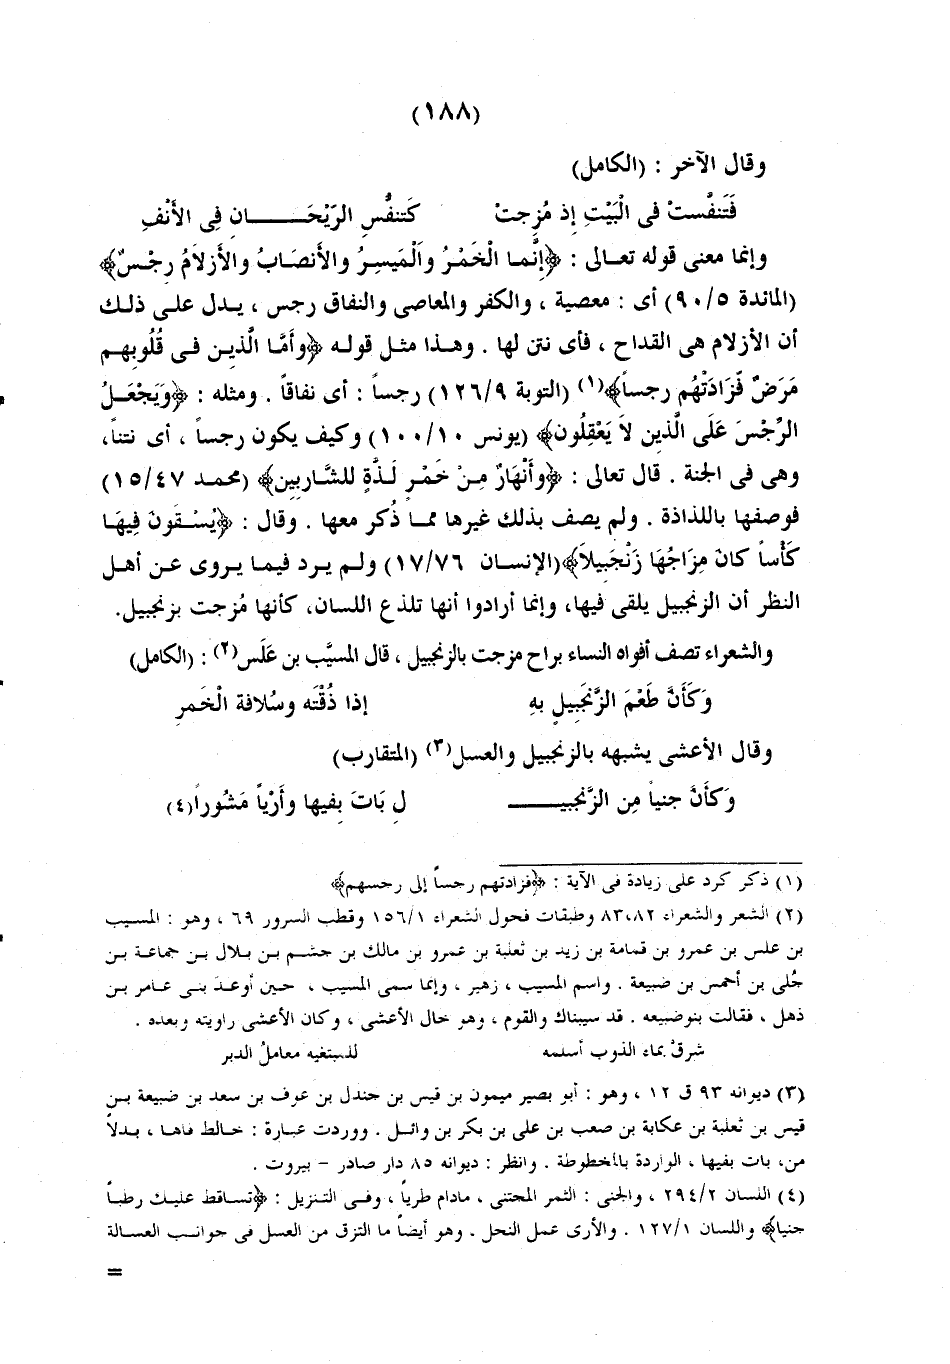 (١٨٨)
وقال الآخر : (الكامل)
فَتَنفُّستْ فى الْبَيْتِ إذ مُزِجتْ كَتنفُّسِ الرّيْحَـــــــان فِى الأنْفِ
وإنما معنى قوله تعـالى : ﴿إنَّمـا الْخَمْرُ والْمَيسِرُ والأنصَابُ والأزلاَمُ رِجْسٌ﴾
(المائدة ٩٠/٥) أى : معصية ، والكفر والمعاصى والنفاق رجس ، يـدل علـى ذلـك
أن الأزلام هى القداح ، فأى نتن لها . وهـذا مثـل قولـه ﴿وأمَّا الَّذيـن فـى قُلُوبِهِـم
مَرَضٌ فَزَادَتْهُم رجساً﴾(١) (التوبة ١٢٦/٩) رجساً : أى نفاقاً . ومثله : ﴿وَيَجْعَـلُ
الرِّجْسَ عَلَى الَّذين لاَ يَعْقِلُون﴾ (يونس ١٠٠/١٠) وكيف يكون رجساً ، أى نتناً،
وهى فى الجنة . قال تعالى : ﴿وأَنْهَارٌ مِـنْ خَمْـرٍ لَـذَّةٍ للشَّـاربين﴾ (محمـد ١٥/٤٧)
فوصفها باللذاذة . ولم يصف بذلك غيرها ممـا ذُكر معها . وقال : ﴿يُسْـقَونَ فِيهَـا
كَأساً كانَ مِزَاجُهَا زَنْجَبيلاً﴾(الإنسان ١٧/٧٦) ولـم يـرد فيمـا يـروى عـن أهـل
النظر أن الزنجبيل يلقى فيها، وإنما أرادوا أنها تلذع اللسان، كأنها مُزجت بزنجبيل.
والشعراء تصف أفواه النساء براح مزجت بالزنجبيل ، قال المسيَّب بن عَلَس(٢) : (الكامل)
وَكَأَنَّ طَعْمَ الزَّنْجَبِيلِ بِهِ إذا ذُقْتَه وسُلافة الْخَمرِ
وقال الأعشى يشبهه بالزنجبيل والعسل(٣) (المتقارب)
وَكَأَنَّ جنياً مِن الزَّنْجبيـــــــ لِ بَاتَ بِفيها وأرْياً مَشُوراً(٤)
(١) ذكر كرد على زيادة فى الآية : ﴿فزادتهم رجساً إلى رجسهم﴾
(٢) الشعر والشعراء ٨٣،٨٢ وطبقات فحول الشعراء ١٥٦/١ وقطب السرور ٦٩ ، وهو : المسيب
بن علس بن عمرو بن قمامة بن زيد بن ثعلبة بن عمرو بن مالك بن جشـم بـن بـلال بـن جماعـة بـن
جُلى بن أحمس بن ضبيعة . واسم المسيب ، زهير ، وإنما سمى المسيب ، حـين أوعـدَ بنـى عـامر بـن
ذهل ، فقالت بنوضبيعه . قد سيبناك والقوم ، وهو خال الأعشى ، وكان الأعشى راويته وبعده .
شرقٌ بماء الذوب أسلمه للمبتغيه معاملُ الدبر
(٣) ديوانه ٩٣ ق ١٢ ، وهو : أبو بصير ميمون بن قيس بن جندل بن عوف بن سعد بن ضبيعة بـن
قيس بن ثعلبة بن عكابة بن صعب بن على بن بكر بن وائـل . ووردت عبارة : خـالط فاهـا ، بـدلاً
من، بات بفيها ، الواردة بالمخطوطة . وانظر : ديوانه ٨٥ دار صادر – بيروت .
(٤) اللسان ٢٩٤/٢ ، والجنى : الثمر المجتنى ، مادام طرياً ، وفـى التنزيل : ﴿تساقط عليـك رطبـاً
جنيا﴾ واللسان ١٢٧/١ . والأرى عمل النحل . وهو أيضاً ما التزق من العسل فى جوانـب العسالة
=